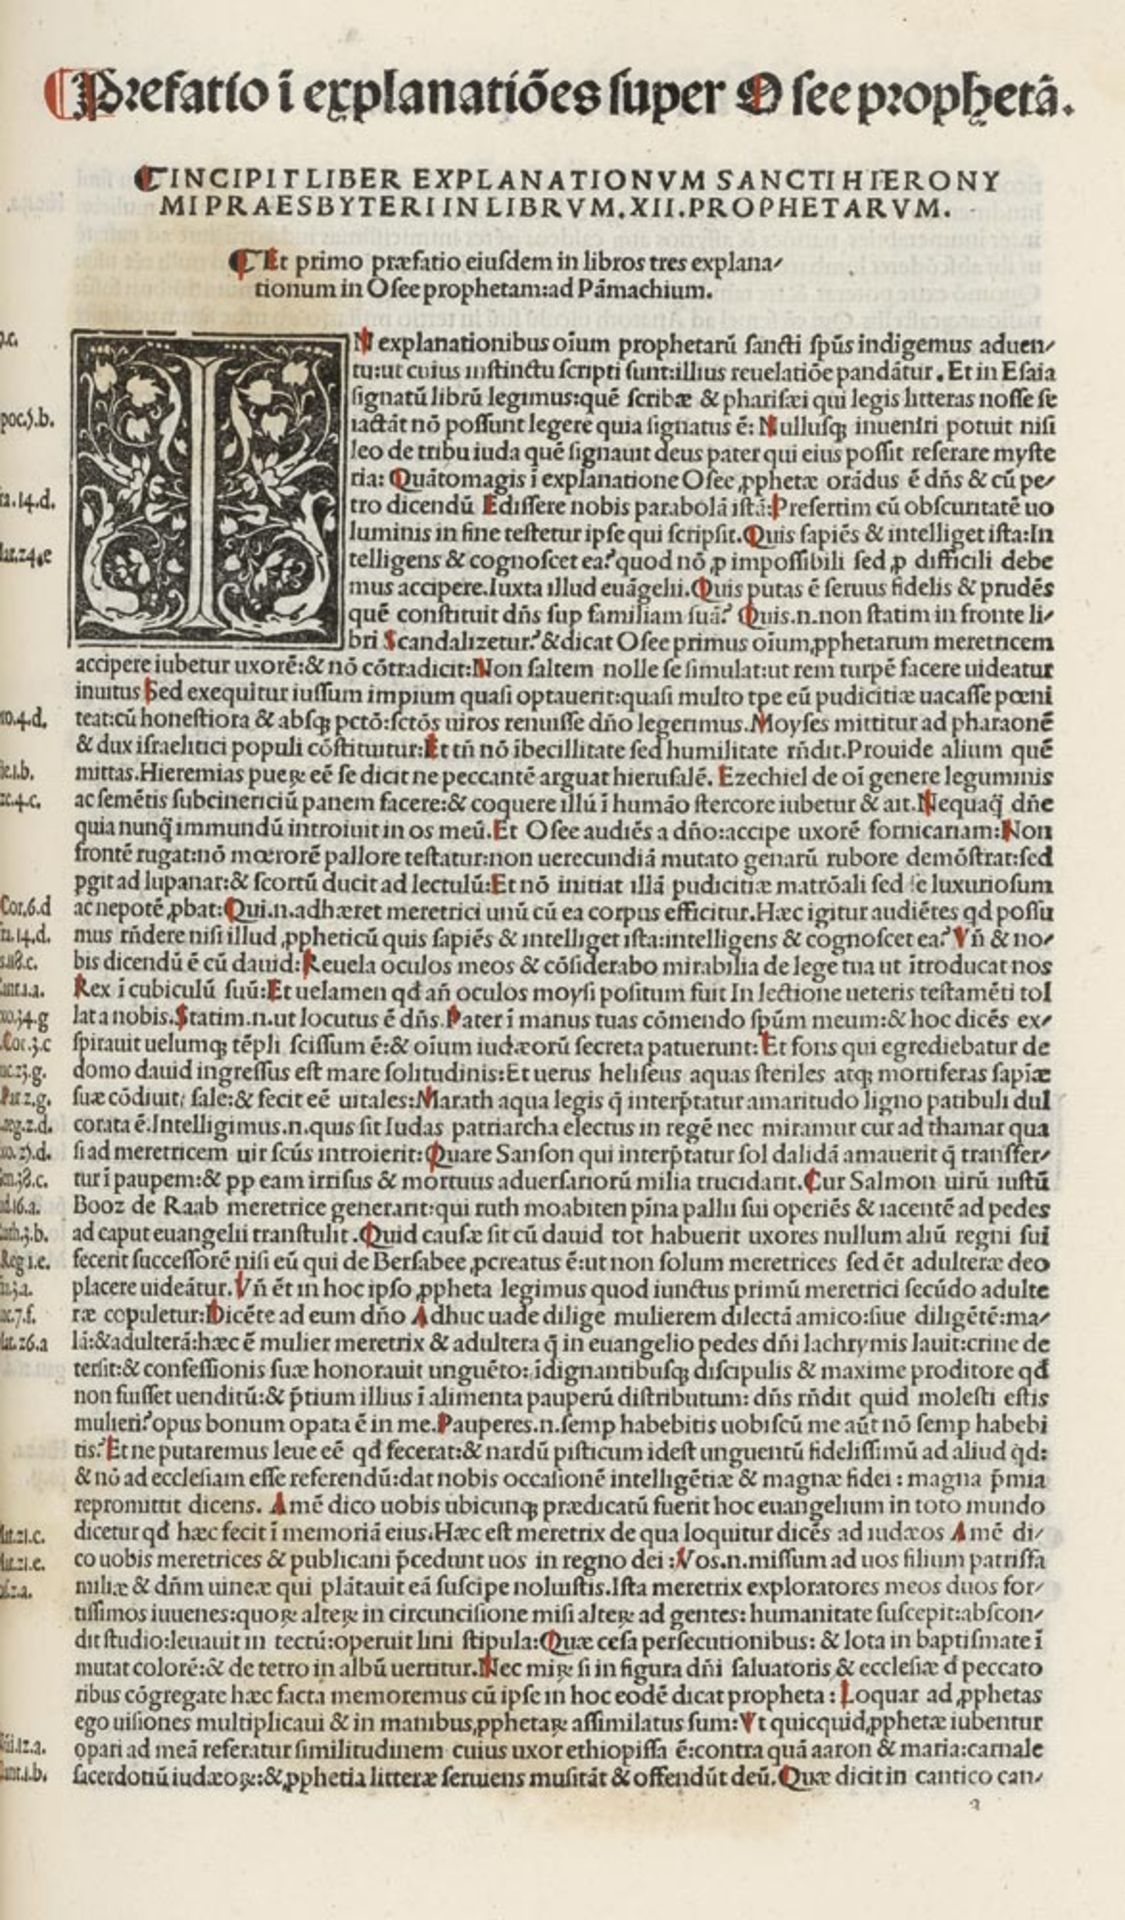 Prefatio ī explanatiōes ſuper Oſee prophetā.
INCIPIT LIBER EXPLANATIONVM SANCTI HIERONY
MI PRAESBYTERI IN LIBRVM.XII.PROPHETARVM.
Et primo præfatio eiuſdem in libros tres explana⸗
tionum in Oſee prophetam:ad Pāmachium.
IN explanationibus oīum prophetarū ſancti ſpūs indigemus aduen⸗
tu:ut cuius inſtinctu ſcripti ſunt:illius reuelatiōe pandātur. Et in Eſaia
ſignatū librū legimus:quē ſcribæ & phariſæi qui legis litteras noſſe ſe
iactāt nō poſſunt legere quia ſignatus ē: Nulluſqꝫ inueniri potuit niſi
leo de tribu iuda quē ſignauit deus pater qui eius poſſit reſerare myſte
ria: Quātomagis ī explanatione Oſee ꝓphetæ orādus ē dn̄s & cū pe⸗
tro dicendū Ediſſere nobis parabolā iſtā:Preſertim cū obſcuritatē uo
luminis in fine teſtetur ipſe qui ſcripſit.Quis ſapiēs & intelliget iſta:In
telligens & cognoſcet ea?quod nō ꝓ impoſſibili ſed ꝓ difficili debe
mus accipere.Iuxta illud euāgelii.Quis putas ē ſeruus fidelis & prudēs
quē conſtituit dn̄s ſup familiam ſuā? Quis.n.non ſtatim in fronte li⸗
bri Scandalizetur?&dicat Oſee primus oīum ꝓphetarum meretricem
accipere iubetur uxorē:& nō cōtradicit:Non ſaltem nolle ſe ſimulat:ut rem turpē facere uideatur
inuitus Sed exequitur iuſſum impium quaſi optauerit:quaſi multo tpe eū pudicitiæ uacaſſe pœni
teat:cū honeſtiora & abſqꝫ pctō:ſctōs uiros renuiſſe dn̄o legerimus.Moyſes mittitur ad pharaonē
& dux iſraelitici populi cōſtituitur:Et tn̄ nō ībecillitate ſed humilitate rn̄dit.Prouide alium quē
mittas.Hieremias pueꝝ eē ſe dicit ne peccantē arguat hieruſalē. Ezechiel de oī genere leguminis
ac ſemētis ſubcinericiū panem facere:& coquere illū ī humāo ſtercore iubetur & ait.Nequaq̄ dn̄e
quia nunq̄ immundū introiuit in os meū.Et Oſee audiēs a dn̄o:accipe uxorē fornicariam:Non
frontē rugat:nō mœrorē pallore teſtatur:non uerecundiā mutato genarū rubore demōſtrat:ſed
pgit ad lupanar:& ſcortū ducit ad lectulū:Et nō initiat illā pudicitiæ matrōali ſed ſe luxurioſum
ac nepotē ꝓbat:Qui.n.adhæret meretrici unū cū ea corpus efficitur.Hæc igitur audiētes qd poſſu
mus rn̄dere niſi illud ꝓpheticū quis ſapiēs & intelliget iſta:intelligens & cognoſcet ea? Vn̄ & no⸗
bis dicendū ē cū dauid:Reuela oculos meos & cōſiderabo mirabilia de lege tua ut ītroducat nos
Rex ī cubiculū ſuū:Et uelamen qd an̄ oculos moyſi poſitum fuit In lectione ueteris teſtamēti tol
lat a nobis.Statim.n.ut locutus ē dn̄s.Pater ī manus tuas cōmendo ſpūm meum:& hoc dicēs ex⸗
ſpirauit uelumqꝫ tēpli ſciſſum ē:& oīum iudæorū ſecreta patuerunt:Et fons qui egrediebatur de
domo dauid ingreſſus eſt mare ſolitudinis:Et uerus heliſeus aquas ſteriles atqꝫ mortiferas ſapīæ
ſuæ cōdiuit ſale:& fecit eē uitales:Marath aqua legis q̄ interp̄tatur amaritudo ligno patibuli dul
corata ē.Intelligimus.n.quis ſit Iudas patriarcha electus in regē nec miramur cur ad thamar qua
ſi ad meretricem uir ſcūs introierit:Quare Sanſon qui interp̄tatur ſol dalidā amauerit q̄ tranſfer⸗
tur ī paupem:& pp eam irriſus & mortuus aduerſariorū milia trucidarit.Cur Salmon uirū iuſtū
Booz de Raab meretrice generarit:qui ruth moabiten pīna pallii ſui operiēs & iacentē ad pedes
ad caput euangelii tranſtulit.Quid cauſæ ſit cū dauid tot habuerit uxores nullum aliū regni ſui
fecerit ſucceſſorē niſi eū qui de Berſabee ꝓcreatus ē:ut non ſolum meretrices ſed ēt adulteræ deo
placere uideātur.Vn̄ ēt in hoc ipſo ꝓpheta legimus quod iunctus primū meretrici ſecūdo adulte
ræ copuletur:Dicēte ad eum dn̄o Adhuc uade dilige mulierem dilectā amico:ſiue diligētē:ma⸗
lā:&adulterā:hæc ē mulier meretrix & adultera q̄ in euangelio pedes dn̄i lachrymis lauit:crine de
terſit:& confeſſionis ſuæ honorauit unguēto: īdignantibuſqꝫ diſcipulis & maxime proditore qd
non fuiſſet uenditū:& p̄tium illius ī alimenta pauperū diſtributum: dn̄s rn̄dit quid moleſti eſtis
mulieri?opus bonum opata ē in me.Pauperes.n.ſemp habebitis uobiſcū me aūt nō ſemp habebi
tis?Et ne putaremus leue eē qd fecerat:& nardū piſticum ideſt unguentū fideliſſimū ad aliud q̇d:
& nō ad eccleſiam eſſe referendū:dat nobis occaſionē intelligētiæ & magnæ fidei : magna p̄mia
repromittit dicens. Amē dico uobis ubicunqꝫ prædicatū fuerit hoc euangelium in toto mundo
dicetur qd hæc fecit ī memoriā eius.Hæc eſt meretrix de qua loquitur dicēs ad iudæos Amē di⸗
co uobis meretrices & publicani p̄cedunt uos in regno dei :Vos.n.miſſum ad uos filium patriſfa
miliæ & dn̄m uineæ qui plātauit eā ſuſcipe noluiſtis.Iſta meretrix exploratores meos duos for⸗
tiſſimos iuuenes:quoꝝ alteꝝ in circunciſione miſi alteꝝ ad gentes: humanitate ſuſcepit:abſcon⸗
dit ſtudio:leuauit in tectū:operuit lini ſtipula:Quæ ceſa perſecutionibus: & lota in baptiſmate ī
mutat colorē:& de tetro in albū uertitur.Nec miꝝ ſi in figura dn̄i ſaluatoris & eccleſiæ d̄ peccato
ribus cōgregate hæc facta memoremus cū ipſe in hoc eodē dicat propheta : Loquar ad ꝓphetas
ego uiſiones multiplicaui & in manibus ꝓphetaꝝ aſſimilatus ſum:Vt quicquid ꝓphetæ iubentur
opari ad meā referatur ſimilitudinem cuius uxor ethiopiſſa ē:contra quā aaron & maria:carnale
ſacerdotiū iudæoꝝ:& ꝓphetia litteræ ſeruiens muſitāt & offendūt deū.Quæ dicit in cantico can⸗
poc.5.b.
14.d.
4.d.
i.b.
4.c.
Cor.6.d
14.d.
18.c.
34.g
Cor.3.c
Par 2.g.
38.c.
16.a.
3.b.
Reg 1.e.
7.f.
26.a
21.c.
21.e.
12.a.
a